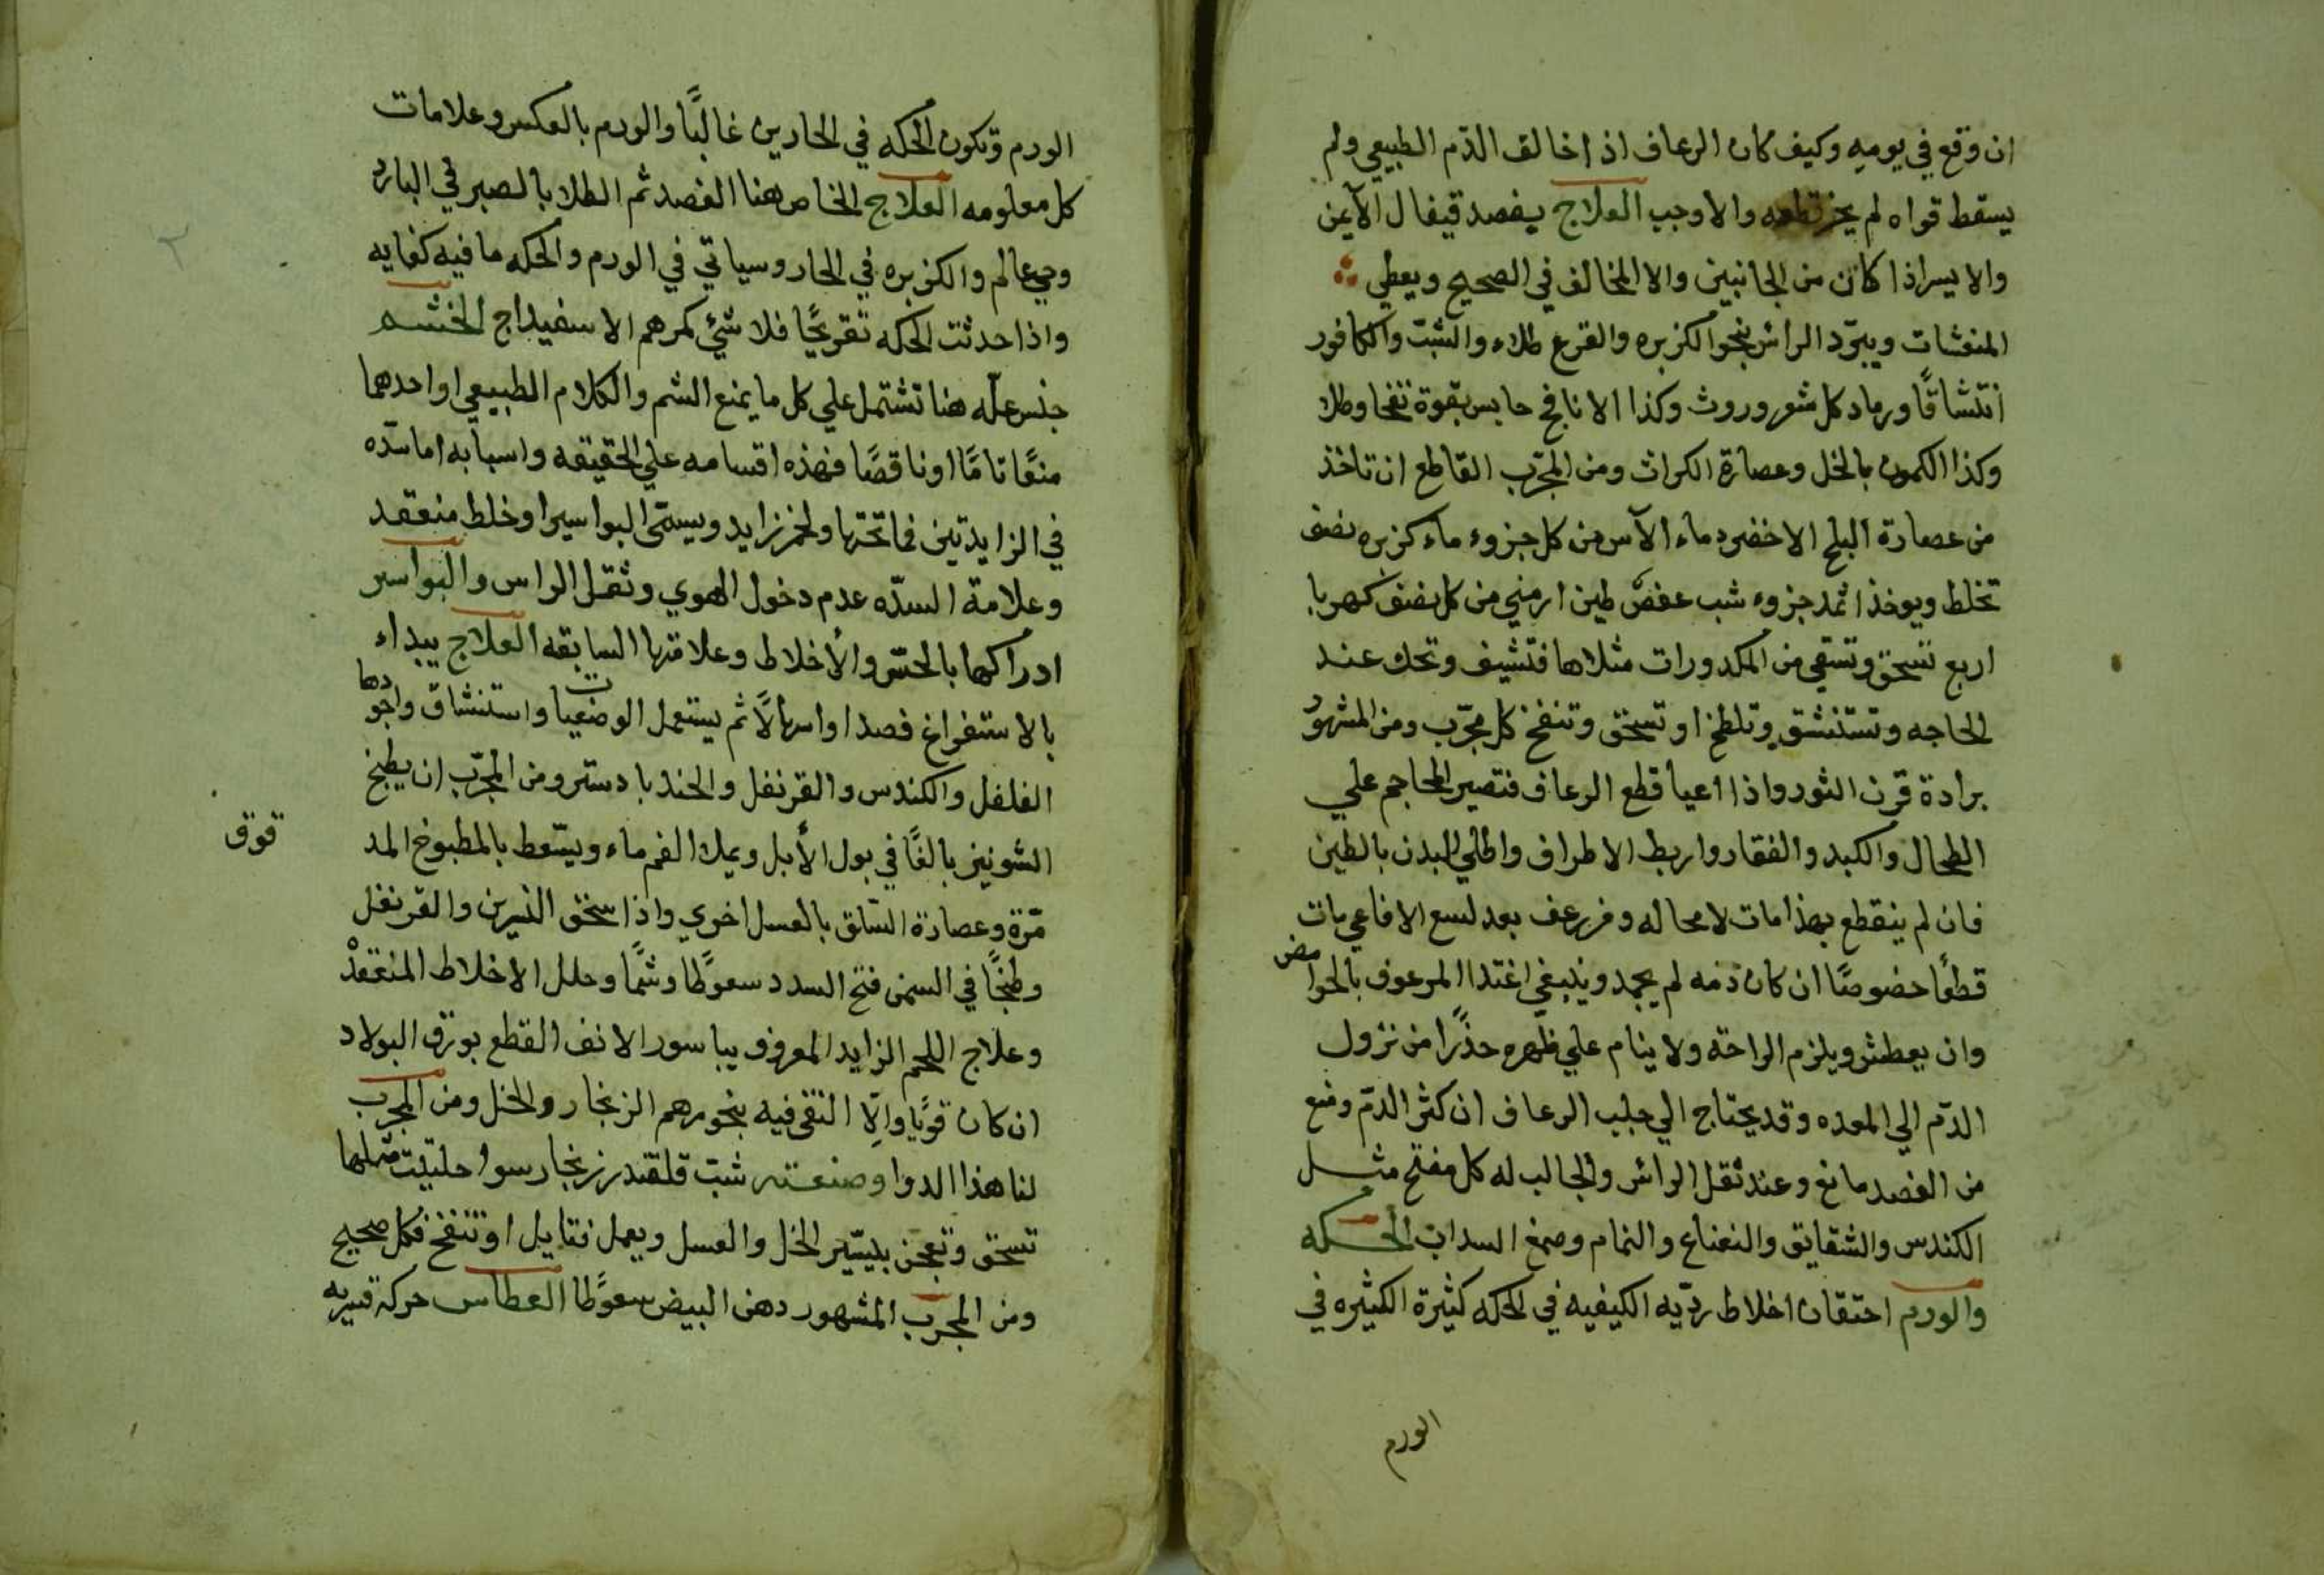 ان وقع في يوميه وكيف كان الرعاف اذا خالف الدّم الطبيعي ولم
يسقط قواه لم يجز قطعه والا وجب العلاج يفصد قيفال الأيمن
والايسر اذا كان من الجانبين والا المخالف في الصحيح ويعطي
المنعشات ويبرّد الراس بنحو الكزبره والقرع طلاء والشبّ والكافور
انتشاقًا ورماد كل شعر وروث وكذا الانافح حابس بقوة نفخا وطلا
وكذا الكمون بالخل وعصارة الكراث ومن المجرّب القاطع ان تاخذ
من عصارة البلح الاخضر وماء الآس من كل جزوء ماء كزبره نصف
تخلط ويوخذ اثمد جزوء شب عفص طين ارمني من كل نصف كهربا
اربع تسحق وتسقي من المكدورات مثلاها فتشيف وتحك عند
الحاجه وتستنشق وتلطخ او تسحق وتنفخ كل مجرّب ومن المشهور
برادة قرن الثور واذا اعيا قطع الرعاف فتصير المحاجم علي
الطحال والكبد والفقار واربط الاطراف واطلي البدن بالطين
فان لم ينقطع بهذا مات لا محاله ومن رعف بعد لسع الافاعي مات
قطعًا خصوصًا ان كان دمه لم يجمد وينبغي اغتدا المرعوف بالحوامض
وان يعطش ويلزم الراحة ولا ينام علي ظهره حذرًا من نزول
الدّم الي المعده وقد يحتاج الي جلب الرعاف ان كثر الدمّ ومنع
من الفصد مانع وعند ثقل الراس والجالب له كل مفتح مثل
الكندس والشقايق والنعناع والنمام وصمغ السداب الحكه
والورم احتقان اخلاط رديّه الكيفيه في الحكه كثيرة الكثيره في
الورم
الورم وتكون الحكه في الحارين غالبًا والورم بالعكس وعلامات
كل معلومه العلاج الخاص هنا الفصد ثم الطلا بالصبر في البارد
وحي عالم والكزبره في الحار وسياتي في الورم والحكه ما فيه كفايه
واذا حدثت الحكه تقرحًّا فلا شيّ كمرهم الاسفيداج الخشم
جنس علّه هنا تشتمل علي كل ما يمنع الشم والكلام الطبيعي او احدهما
منعًا تامًّا او ناقصًا فهذه اقسامه علي الحقيقه واسبابه اما سدّه
في الزايدتين فما تحتها ولحم زايد ويسمّى البواسير او خلط منعقد
وعلامة السدّه عدم دخول الهوي وثقل الراس والبواسر
ادراكها بالحسّ والأخلاط وعلامتها السابقه العلاج يبداء
بالاستفراغ فصدا واسهالًا ثم يستعمل الوضعيات واستنشاق واجودها
الفلفل والكندس والقرنفل والجندبادستر ومن المجرّب ان يطبخ
الشونيز بالغًا في بول الأبل ويملا الفم ماء ويسّعط بالمطبوخ المد
قوق
مّرة وعصارة السّلق بالعسل اخوي واذا سحق النسرين والقرنفل
وطبخًا في السمن فتح السدد سعوطًا وشمًّا وحلل الاخلاط المنعقدْ
وعلاج اللحم الزايد المعروف بباسور الانف القطع بورق البولاد
ان كان قويًا والّا التقي فيه بنحو مرهم الزنجار والخل ومن المجرب
لنا هذا الدوا وصنعته شبّ قلقند زنجار سوا حلتيت مثلها
تسحق وتعجن بيسّير الخل والعسل ويعمل فتايل او تنفخ فكل صحيح
ومن المجرب المشهور دهن البيض سعوطًا العطاس حركة قسريه